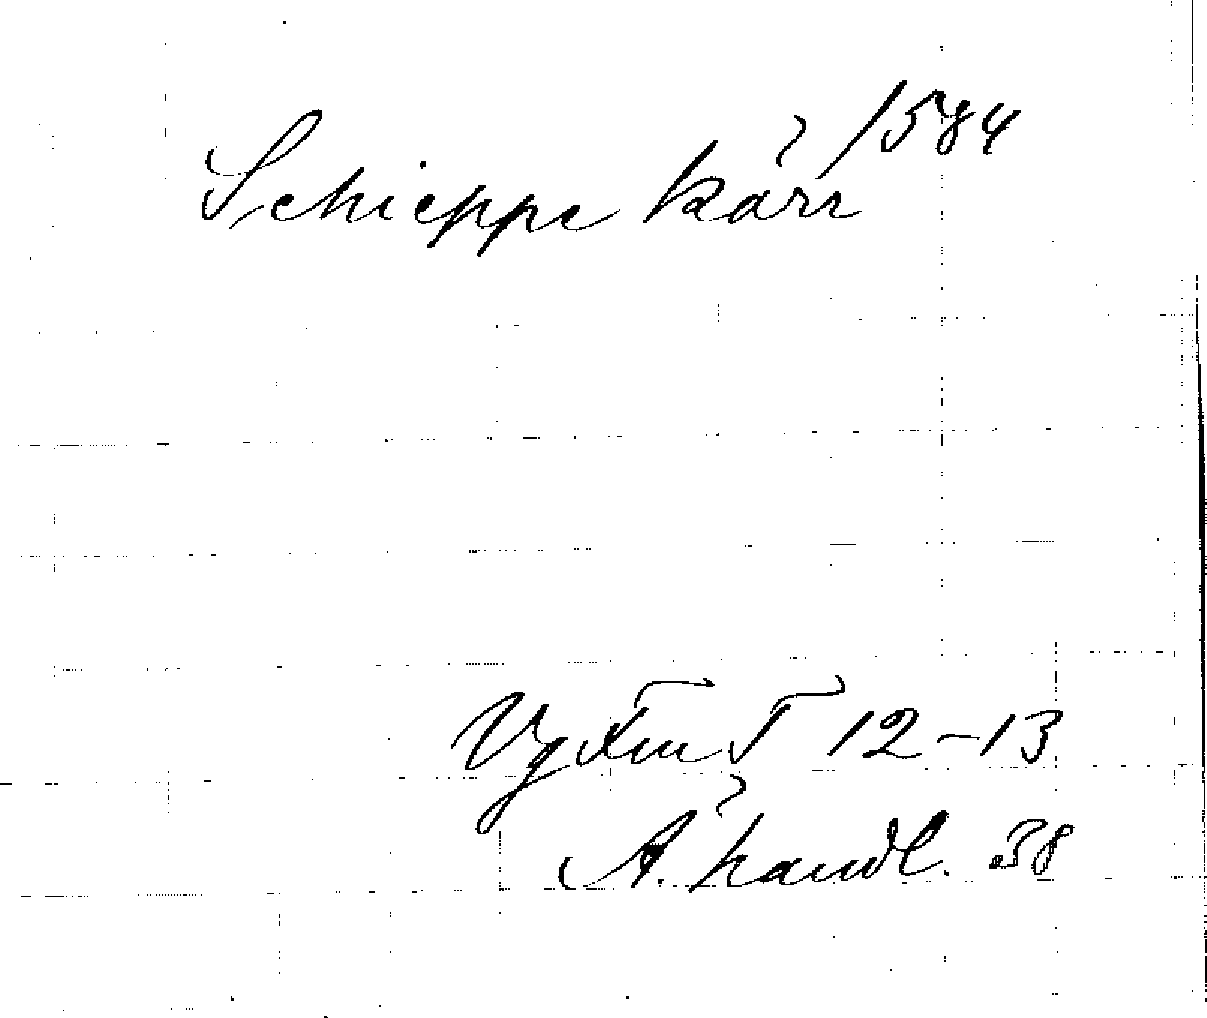 Schieppe kärr /1584
Vg Xm T 12-13
Ä. handl. 38